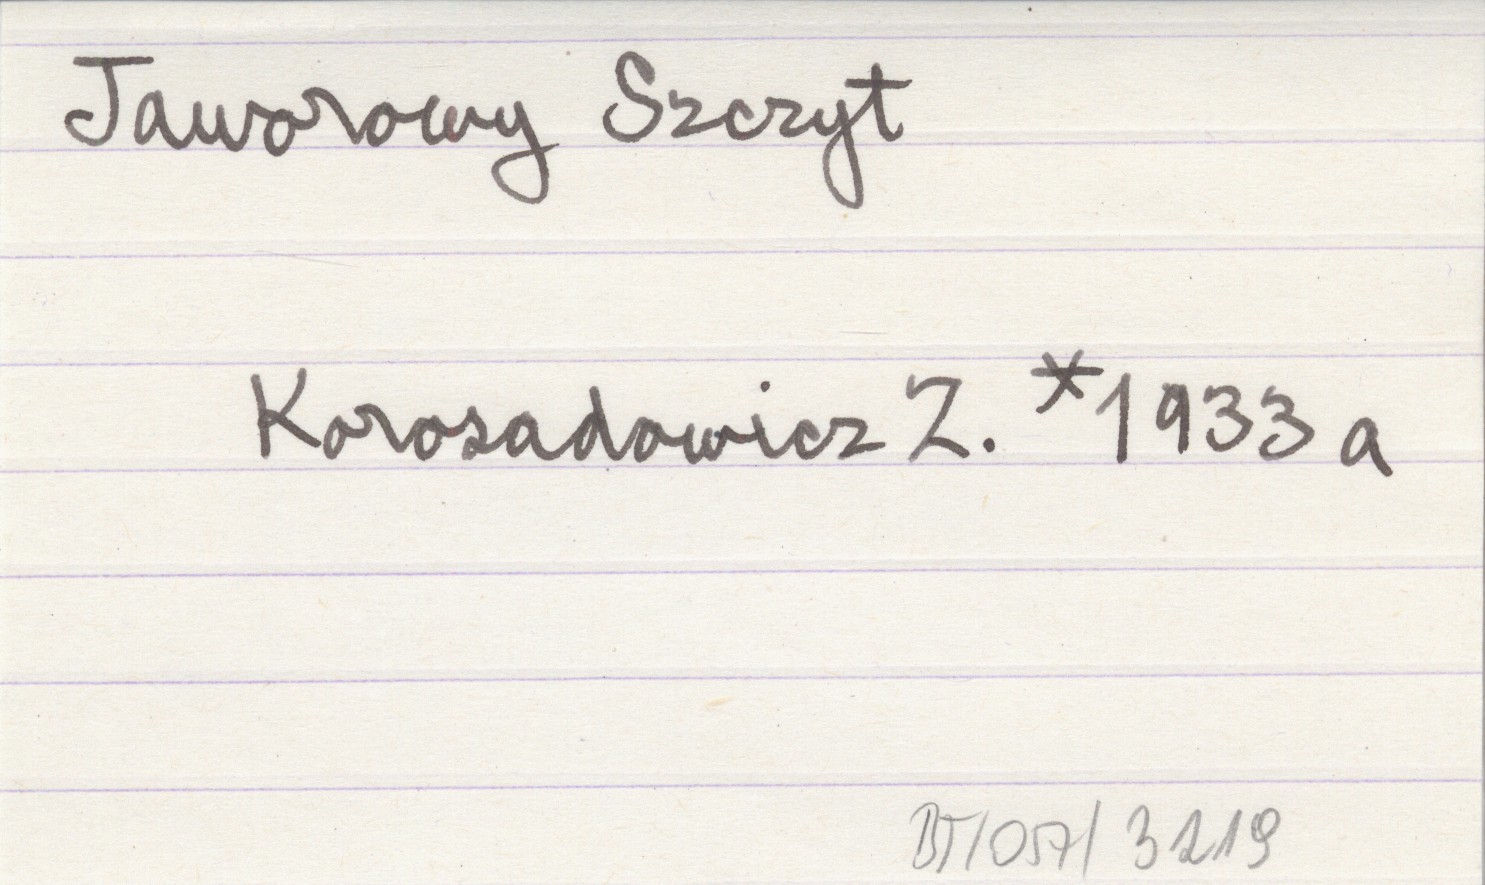 Jaworowy Szczyt
Korosadowicz Z. *1933 a
BT/057/3219